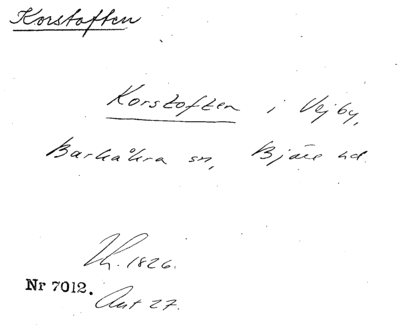 Korstoften
Korstoften i Vejby,
Barkåkra sn, Bjäre hd.
1826.
Nr 7012.
27.